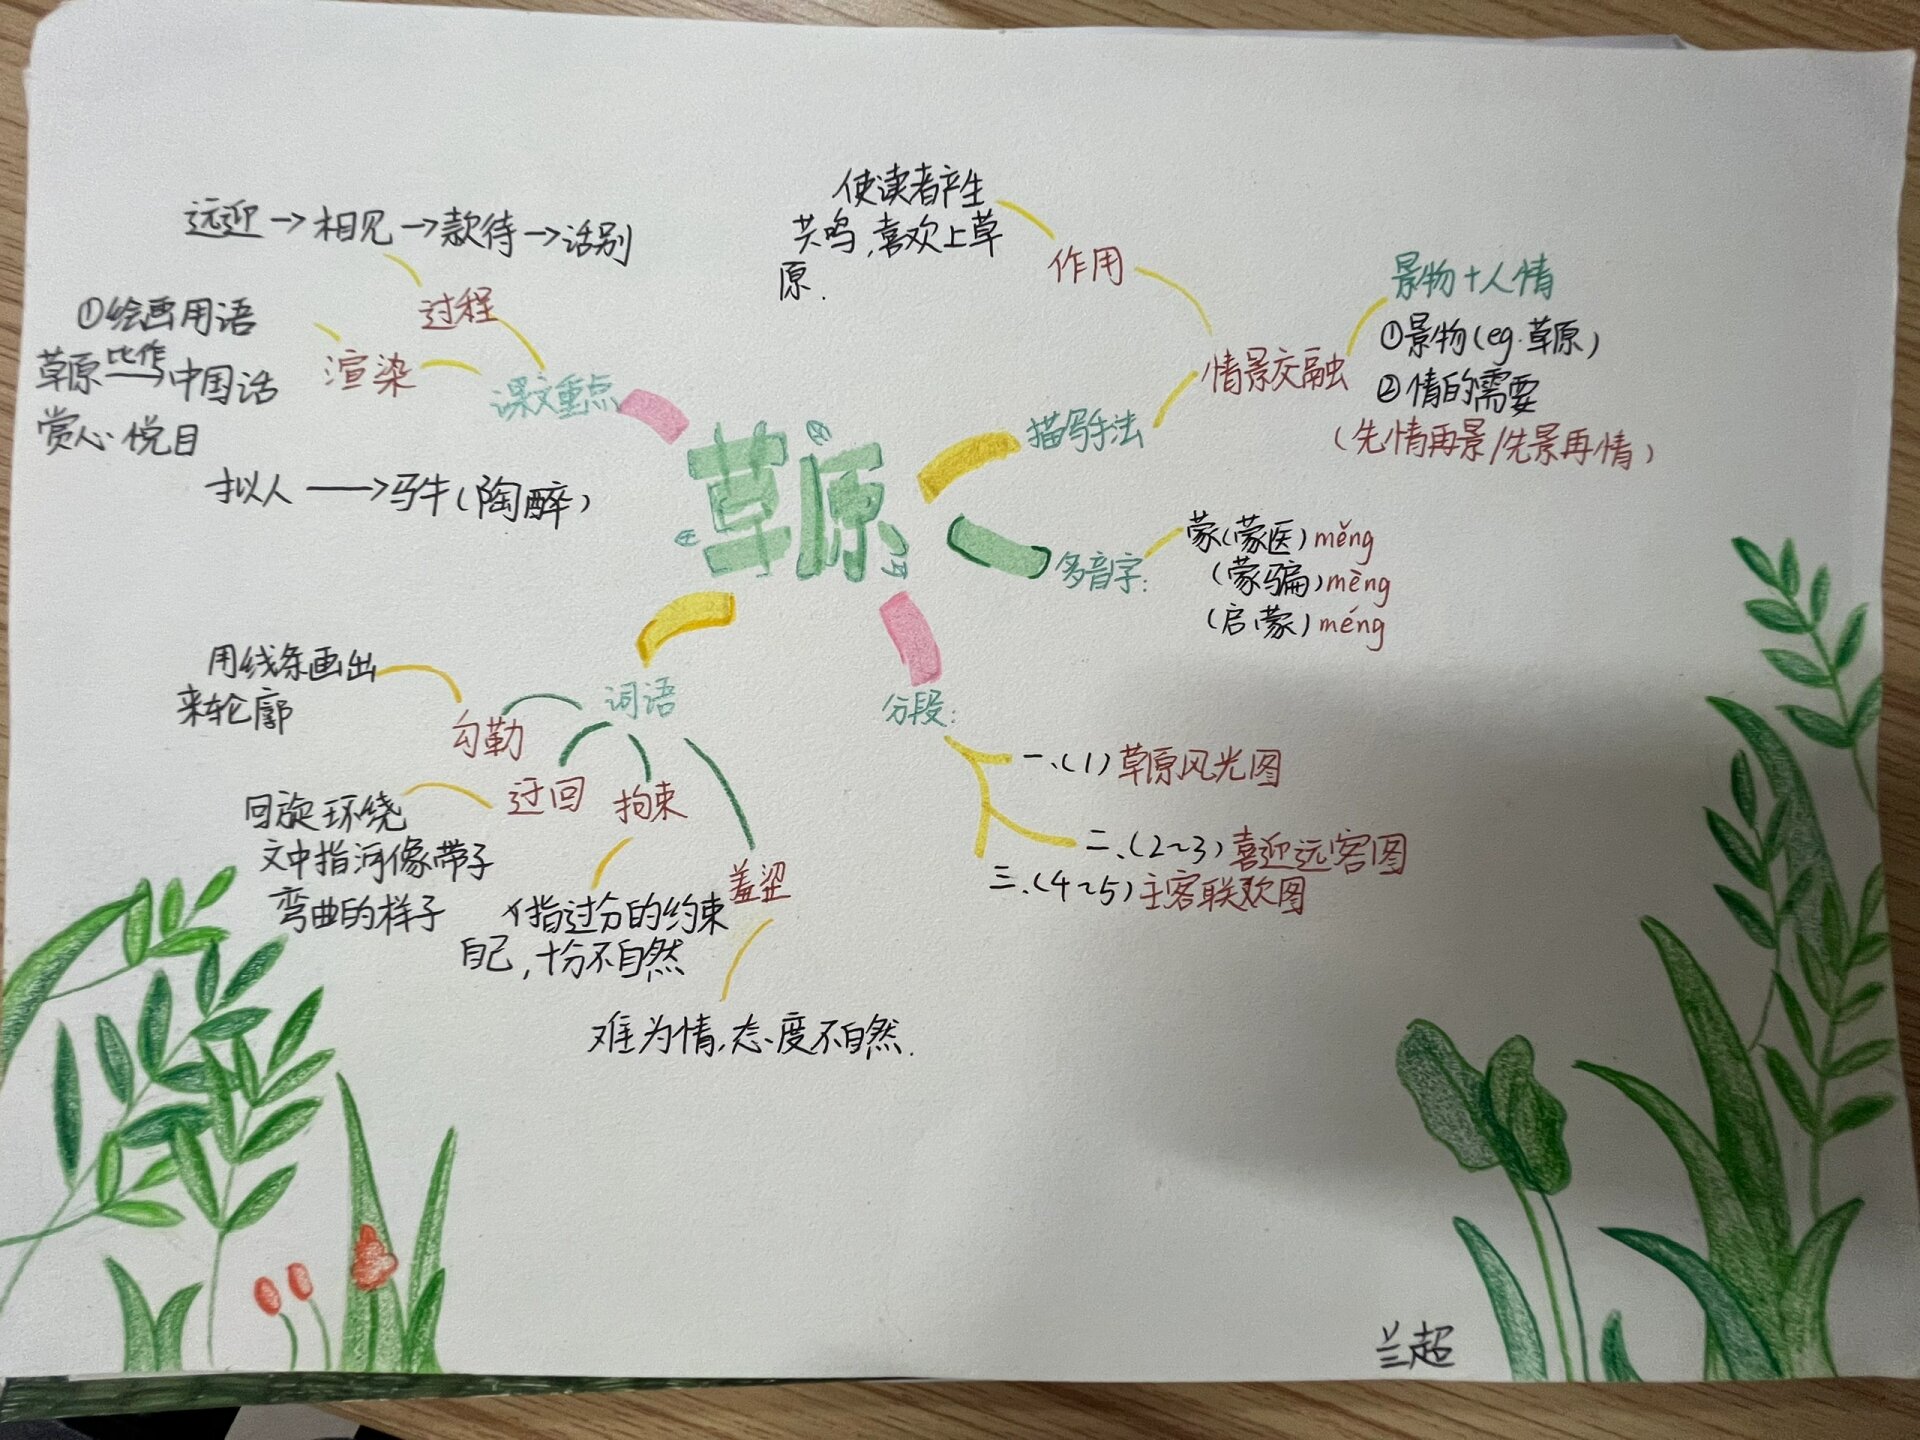 草原
课文重点
过程
远迎→相见→款待→话别
渲染
①绘画用语
草原 比作→ 中国话
赏心悦目
拟人→马牛(陶醉)
描写手法
情景交融
作用
使读者产生
共鸣,喜欢上草
原.
景物+人情
①景物(eg.草原)
②情的需要
(先情再景/先景再情)
多音字:
蒙(蒙医)měng
(蒙骗)mēng
(启蒙)méng
词语
勾勒
用线条画出
来轮廓
迂回
回旋环绕
文中指河像带子
弯曲的样子
拘束
指过分的约束
自己,十分不自然
羞涩
难为情,态度不自然.
分段:
一、(1)草原风光图
二、(2~3)喜迎远客图
三、(4~5)主客联欢图
兰超